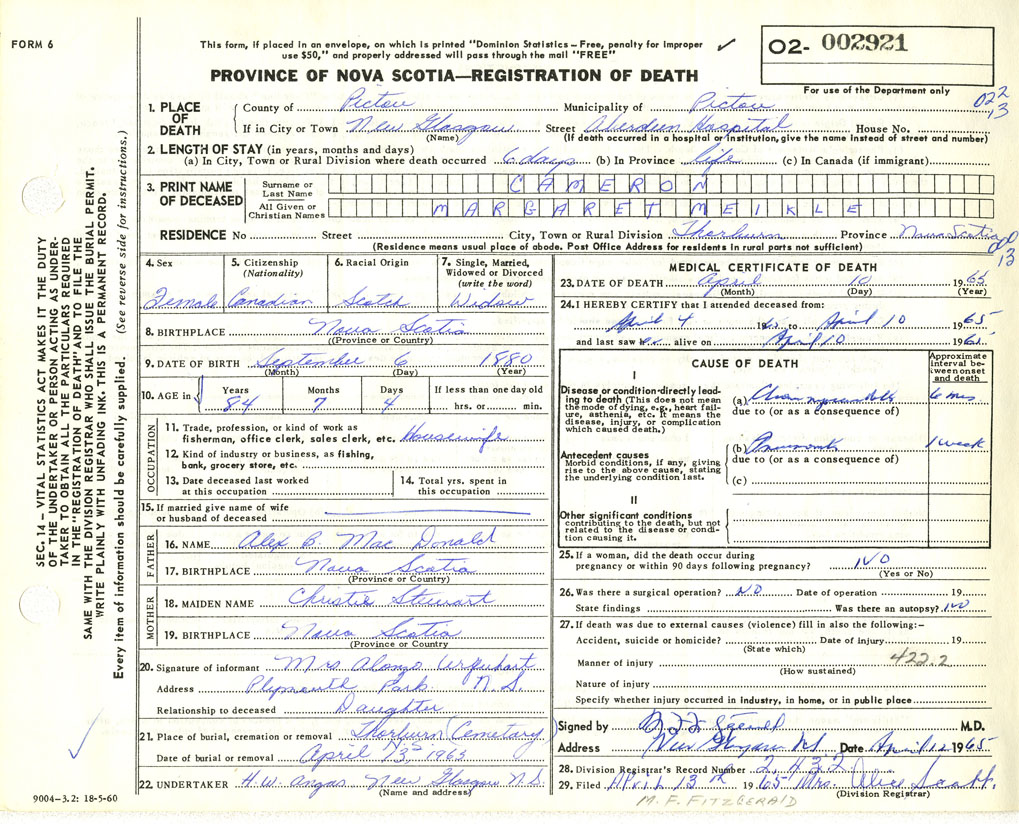 FORM 6
This form, if placed in an envelope, on which is printed "Dominion Statistics – Free, penalty for improper
use $50," and properly addressed will pass through the mail "FREE"
✓
O2- 002921
For use of the Department only
PROVINCE OF NOVA SCOTIA—REGISTRATION OF DEATH
022
13
1. PLACE OF DEATH
County of Pictou Municipality of Pictou
If in City or Town New Glasgow Street Aberdeen Hospital House No.
(Name) (If death occurred in a hospital or institution, give the name instead of street and number)
2. LENGTH OF STAY (in years, months and days)
(a) In City, Town or Rural Division where death occurred 6 days (b) In Province life (c) In Canada (if immigrant)
3. PRINT NAME OF DECEASED
Surname or Last Name CAMERON
All Given or Christian Names MARGARET MEIKLE
RESIDENCE No Street City, Town or Rural Division Thorburn Province Nova Scotia
(Residence means usual place of abode. Post Office Address for residents in rural parts not sufficient)
000
13
4. Sex Female
5. Citizenship (Nationality) Canadian
6. Racial Origin Scotch
7. Single, Married, Widowed or Divorced (write the word) Widow
8. BIRTHPLACE Nova Scotia
((Province or Country)
9. DATE OF BIRTH September 6 1880
(Month) (Day) (Year)
10. AGE in Years 84 Months 7 Days 4 If less than one day old hrs. or min.
OCCUPATION
11. Trade, profession, or kind of work as
fisherman, office clerk, sales clerk, etc. Housewife
12. Kind of industry or business, as fishing,
bank, grocery store, etc.
13. Date deceased last worked
at this occupation
14. Total yrs. spent in
this occupation
15. If married give name of wife
or husband of deceased
FATHER
16. NAME Alex B. MacDonald
17. BIRTHPLACE Nova Scotia
(Province or Country)
MOTHER
18. MAIDEN NAME Christie Stewart
19. BIRTHPLACE Nova Scotia
(Province or Country
20. Signature of informant Mrs Alonzo Urquhart
Address Plymouth Park N.S.
Relationship to deceased Daughter
21. Place of burial, cremation or removal Thorburn Cemetary
Date of burial or removal April 13 1965
22. UNDERTAKER H.W. Angus New Glasgow N.S.
(Name and address)
9004-3.2: 18-5-60
MEDICAL CERTIFICATE OF DEATH
23. DATE OF DEATH April 10 1965
(Month) (Day) (Year)
24. I HEREBY CERTIFY that I attended deceased from:
April 4 19 to April 10 1965
and last saw alive on April 10 196
CAUSE OF DEATH
Approximate interval between onset and death
I
Disease or condition directly leading to death (This does not mean
the mode of dying, e.g., heart failure, asthenia, etc. It means the
disease, injury, or complication
which caused death.)
(a) 6 mos
due to (or as a consequence of)
Antecedent causes
Morbid conditions, if any, giving
rise to the above cause, stating
the underlying condition last.
(b) Pneumonia 1 week
due to (or as a consequence of)
(c)
II
Other significant conditions
contributing to the death, but not
related to the disease or condition causing it.
25. If a woman, did the death occur during
pregnancy or within 90 days following pregnancy? NO
(Yes or No)
26. Was there a surgical operation? NO Date of operation 19
State findings Was there an autopsy? NO
27. If death was due to external causes (violence) fill in also the following:–
Accident, suicide or homicide? Date of injury 19
(State which)
Manner of injury 422.2
(How sustained)
Nature of injury
Specify whether injury occurred in industry, in home, or in public place
Signed by M.D.
Address New Glasgow NS Date April 12 1965
28. Division Registrar's Record Number 2,432
29. Filed April 13th 1965 Mrs. Alice
(Division Registrar)
M. F. FITZGERALD
SEC. 14 – VITAL STATISTICS ACT MAKES IT THE DUTY
OF THE UNDERTAKER OR PERSON ACTING AS UNDER-
TAKER TO OBTAIN ALL THE PARTICULARS REQUIRED
IN THE "REGISTRATION OF DEATH" AND TO FILE THE
SAME WITH THE DIVISION REGISTRAR WHO SHALL ISSUE THE BURIAL PERMIT.
WRITE PLAINLY WITH UNFADING INK. THIS IS A PERMANENT RECORD.
Every item of information should be carefully supplied. (See reverse side for instructions.)